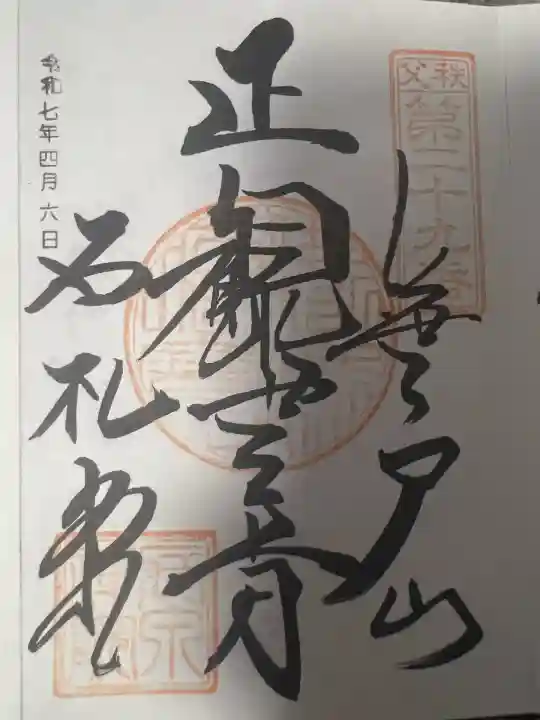 秩父
第二十九番
戸山
正観世音
石札堂
令和七年四月六日